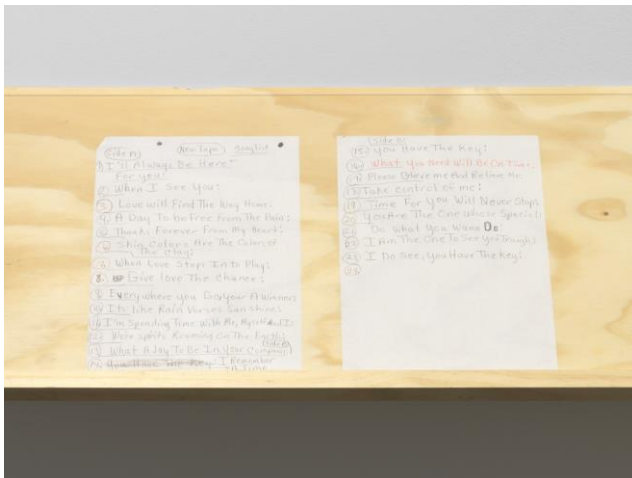 Side A New Tape Songlist
1) I'll Always Be Here"
For you"
2) When I See You:
3) Love will Find The Way Home:
4) A Day To be free From The Pain:
5) Thanks Forever From My Heart:
6) Skin Colors Are The Colors of
The Clay:
When Love Steps Into Play:
8 Give love The Chance:
9 Everywhere you Go, your A Winner:
10 Its like Rain Verses Sunshine:
11 I'm Spending Time With Me, Myself And I:
12 Pete Spirits Roaming On The Earth:
13 What A Joy To Be In Your Company:
Side B
14 You Have The Key: I Remember
A Time
Side B:
15: you Have The Key:
16 What you Need Will Be On Time:
17 Please Me And Relieve Me:
18 Take control of me:
19 Time For You Will Never Stop:
20 You Are The One Whose Special:
Do What You Wana Do
I Am The One To See you Trough:
I Do See, you Have The Key: